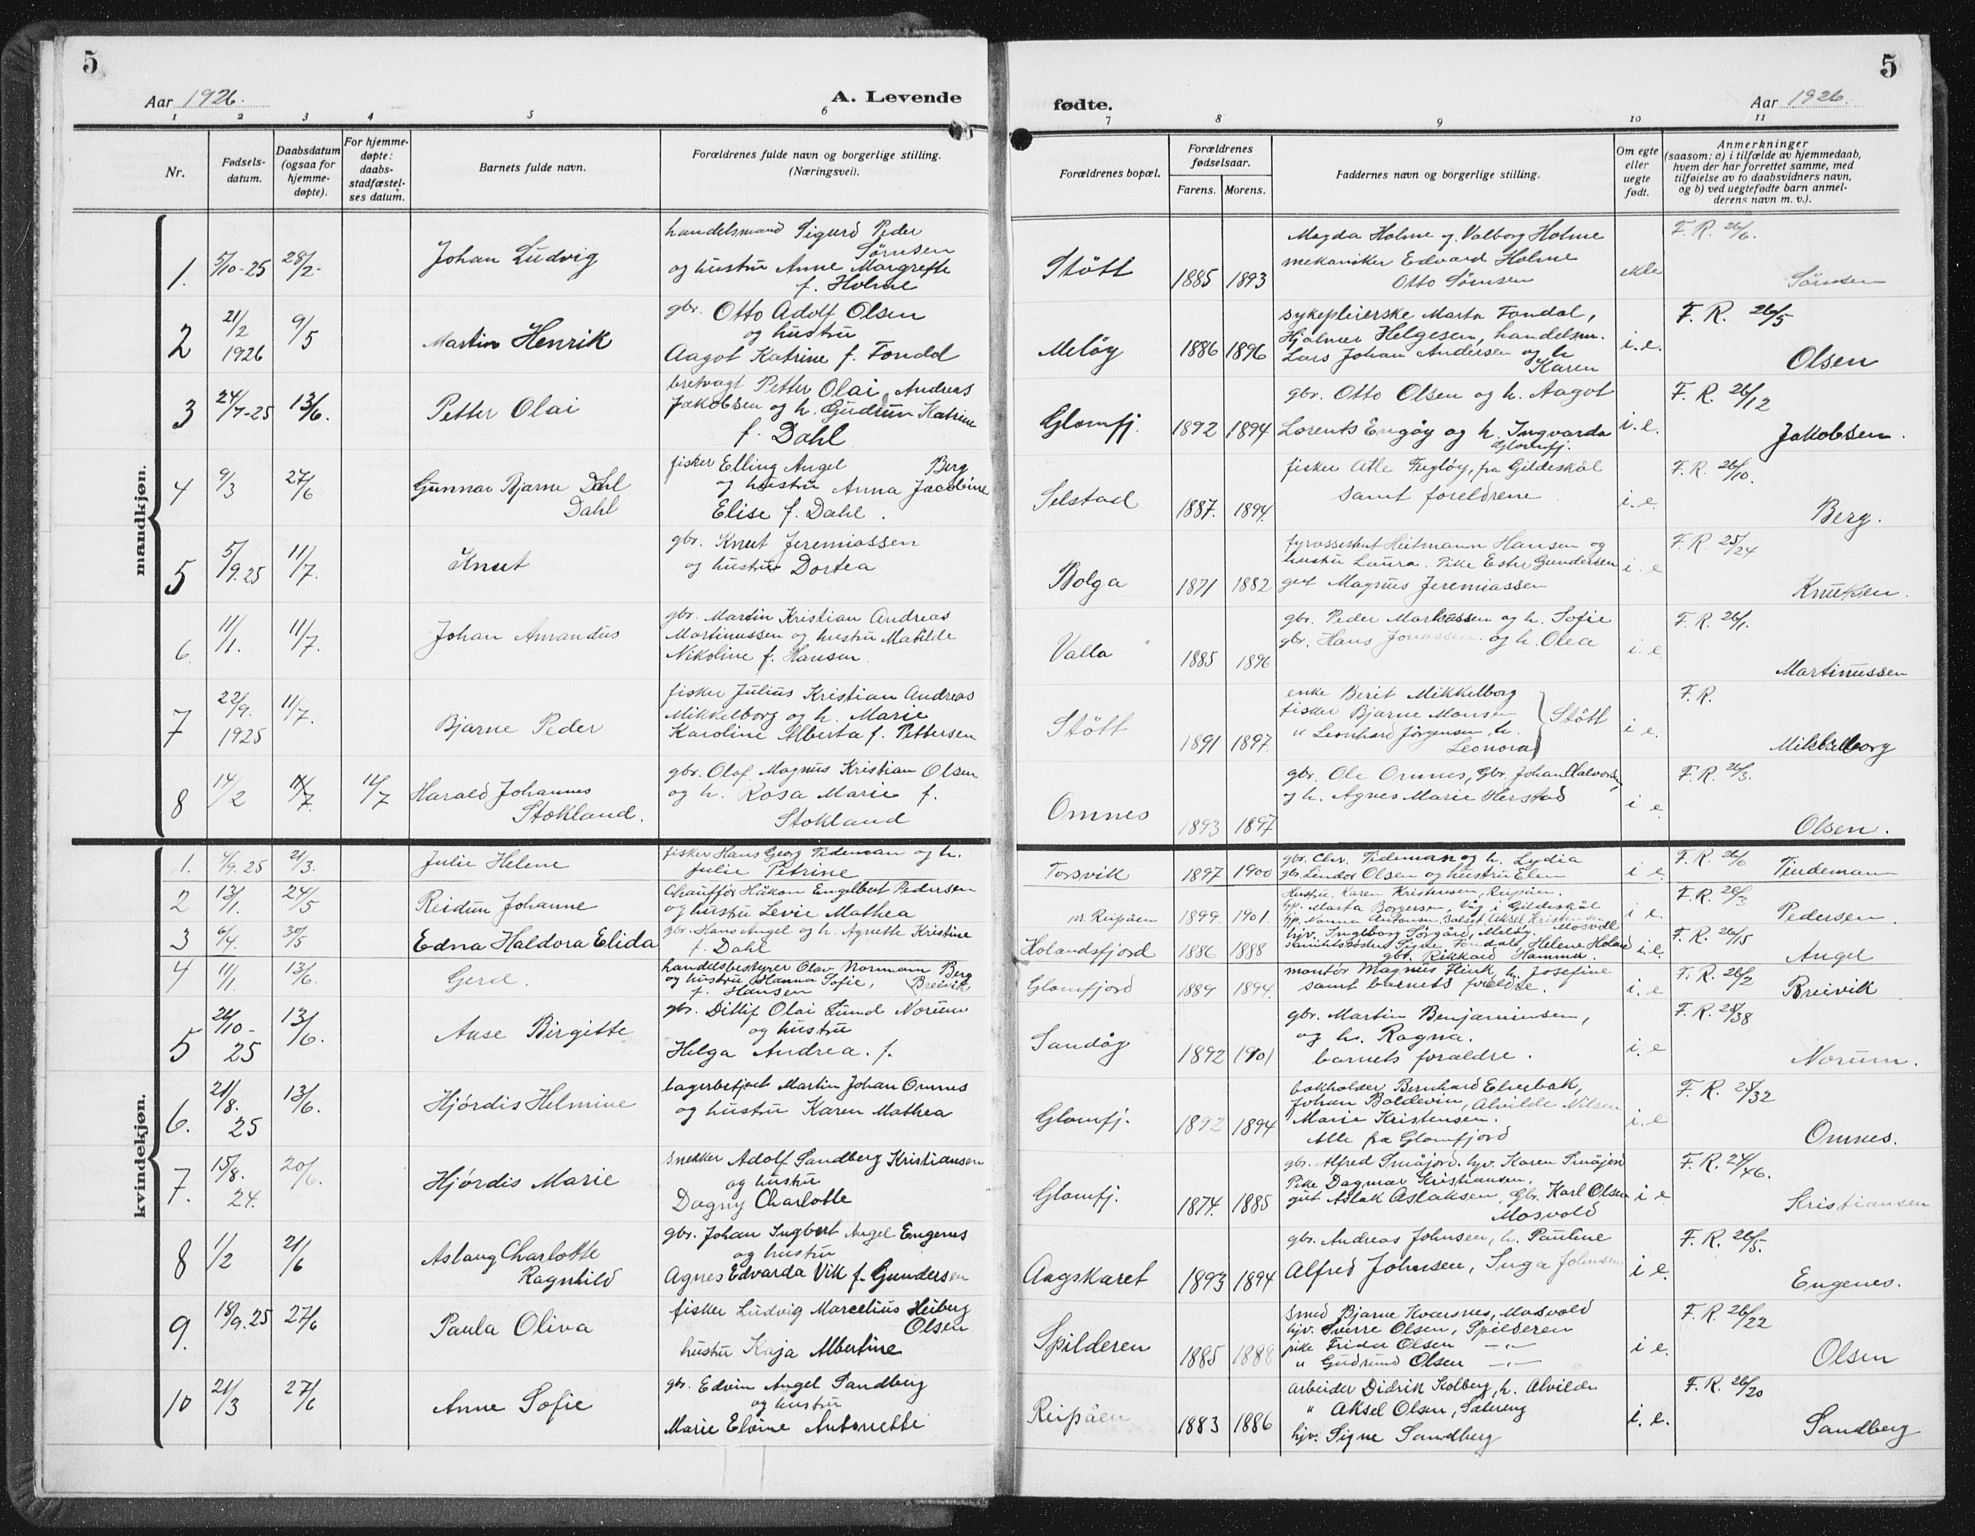 5
Aar 1926.
A. Levende
1 2 3 4 5 6
Nr.
Fødsels-
datum.
Daabsdatum
(ogsaa for
hjemme-
døpte).
For hjemme-
døpte:
daabs-
stadfæstel-
ses datum.
Barnets fulde navn.
Forældrenes fulde navn og borgerlige stilling.
(Næringsvei).
fødte.
Aar 1926.
5
7 8 9 10 11
Forældrenes bopæl.
Forældrenes
fødselsaar.
Farens. Morens.
Faddernes navn og borgerlige stilling.
Om egte
eller
uegte
født.
Anmerkninger
(saasom: a) i tilfælde av hjemmedaab,
hvem der har forrettet samme, med
tilføielse av to daabsvidners navn,
og b) ved uegtefødte barn anmel-
derens navn m. v.).
mandkjøn.
1. 5/10-25 28/2- Johan Ludvig
handelsmand Sigurd Peder
Sørnsen
og hustru Anne Margrethe
f. Holme
Støtt 1885 1893
Magda Holme og Valborg Holme
mekaniker Edvard Holme
Otto Sørnsen
ekte
F. R. 26/6.
Sørnsen
2 21/2 1926 9/5 Martin Henrik
gbr. Otto Adolf Olsen
og hustru
Aagot Katrine f. Fondal
Meløy 1886 1896
sykepleierske Marta Fondal,
Hjalmar Helgesen, handelsm.
Lars Johan Andersen og h
Karen
i. e.
F. R. 26/5
Olsen
3 24/7-25 13/6. Petter Olai
brevagt Petter Olai Andreas
Jakobsen og h. Gudrun Katrine
f. Dahl
Glomfj. 1892 1894
gbr. Otto Olsen og h. Aagot
Lorents Engøy og h. Ingvarda
Glomfj.
i. e.
F. R. 26/12
Jakobsen.
4 9/3 27/6 Gunnar Bjarne Dahl
Dahl
fisker Elling Angel Berg
og hustru Anna Jacobine
Elise f. Dahl.
Selstad 1887. 1894.
fisker Atle Fugløy, fra Gildeskål
samt foreldrene
i. e.
F. R. 26/10.
Berg.
5 5/9.25 11/7. Knut
gbr. Knut Jeremiassen
og hustru Dortea
Bolga 1871 1882
fyrassistent Heitmann Hansen og
hustru Laura. Pike Ester Gundersen
gut Magnus Jeremiassen
i. e
F. R. 25/24
Knutsen.
6. 11/1. 11/7. Johan Amandus
gbr. Martin Kristian Andreas
Martinussen og hustru Matilde
Nikoline f. Hansen.
Valla 1885 1896
gbr. Peder Markussen og h. Sofie
gbr. Hans Jonassen og h. Olea
i. e.
F. R. 26/1.
Martinussen
7 22/9. 1925 11/7. Bjarne Peder
fisker Julius Kristian Andreas
Mikkelborg og h. Marie
Karoline Alberta f. Pettersen
Støtt 1891 1897.
enke Berit Mikkelborg
fisker Bjarne Monsen
" Leonhard Jørgensen, h.
Leonora
Støtt
i e.
F. R.
Mikkelborg
8 14/2 11/7 11/7 Harald Johannes
Stokland.
gbr. Olaf Magnus Kristian Olsen
og h. Rosa Marie f.
Stokland
Omnes 1893 1897
gbr. Ole Omnes, Gbr. Johan Halvorsen,
og h. Agnes Marie Herstad
i e.
F. R. 26/3.
Olsen.
kvindekjøn.
1. 4/9.25 21/3. Julie Helene
fisker Hans Georg Tideman og h.
Julie Petrine
Torsvik 1897 1900
gbr. Chr. Tideman og h. Lydia
gbr. Lendor Olsen og hustru Elen
i e.
F. R. 26/6
Tindemann
2 13/1. 24/5 Reidun Johanne
Chauffør Håkon Engelbert Pedersen
og hustru Levie Mathea
n. Reipåen 1899. 1901.
Hustru Karen Kristensen, Reipåen.
hj. Marta Borgersen, Våg i Gildeskål
i e.
F. R. 26/3
Pedersen.
3 6/4. 30/5 Edna Haldora Elida
gbr. Hans Angel og h. Agnette Kristine
f. Dahl
Holandsfjord 1886 1888
hjv. Ingeborg Sørgåre, Meløy.
gbr. Rikkard Hammer.
i e.
F. R. 26/15
Angel
4 11/1. 13/6. Gerd.
handelsbestyrer Olav Normann Berg
og hustru Hanna Sofie, Breivik
f. Hansen
Glomfjord 1889 1894.
montør Magnus Flink, h. Josefine
samt barnets foreldre.
i. e
F. R. 26/2
Breivik
5 26/10-25 13/6. Aase Birgitte
gbr. Ditlif Olai Lund Norum
og hustru
Helga Andrea. f.
Sandøy 1892 1901
gbr. Martin Benjaminsen,
og h. Ragna.
barnets foreldre.
i. e
F. R. 25/38
Norum.
6. 21/8. 25 13/6. Hjørdis Helmine
lagerbetjent Martin Johan Omnes
og hustru Karen Mathea
Glomfj. 1892 1894
bokholder Bernhard Elvebak,
Johan Boldevin, Alvilde Nilsen
Marie Kristensen.
Alle fra Glomfjord
i e
F. R. 25/32
Omnes.
7. 15/8. 24. 20/6. Hjørdis Marie
snekker Adolf Sandberg Kristiansen
og hustru
Dagny Charlotte
Glomfj. 1874. 1885
gbr. Alfred Småjord, hjv. Karen Småjord
Pike Dagmar Kristiansen,
gut Aslak Aslaksen, Gbr. Karl Olsen
Mosvold
i e
F. R. 24/46.
Kristiansen
8 1/2 21/6 Aslaug Charlotte
Ragnhild
gbr. Johan Ingbert Angel Engenes
og hustru
Agnes Edvarda Vik f. Gundersen
Aagskaret 1893 1894
gbr. Andreas Johnsen, h. Pauline
Alfred Johnsen, Inga Johnsen
i e.
F. R. 26/5.
Engenes.
9. 18/9.25 27/6 Paula Oliva
fisker Ludvig Marcelius Heiberg
Olsen
hustru Kaja Albertine
Spilderen 1885 1888
Smed Bjarne Kværsnes, Mosvold
hjv. Sverre Olsen, Spilderen
pike Frida Olsen —"—
" Gudrund Olsen —"—
i e.
F. R. 26/22
Olsen
10 21/3 27/6 Anne Sofie
gbr. Edvin Angel Sandberg
og hustru
Marie Elvine Antonette
Reipåen 1883 1886
arbeider Didrik Kolberg, h. Alvilde
" Aksel Olsen, Sætereng
hjv. Signe Sandberg
i. e.
F. R. 26/20
Sandberg